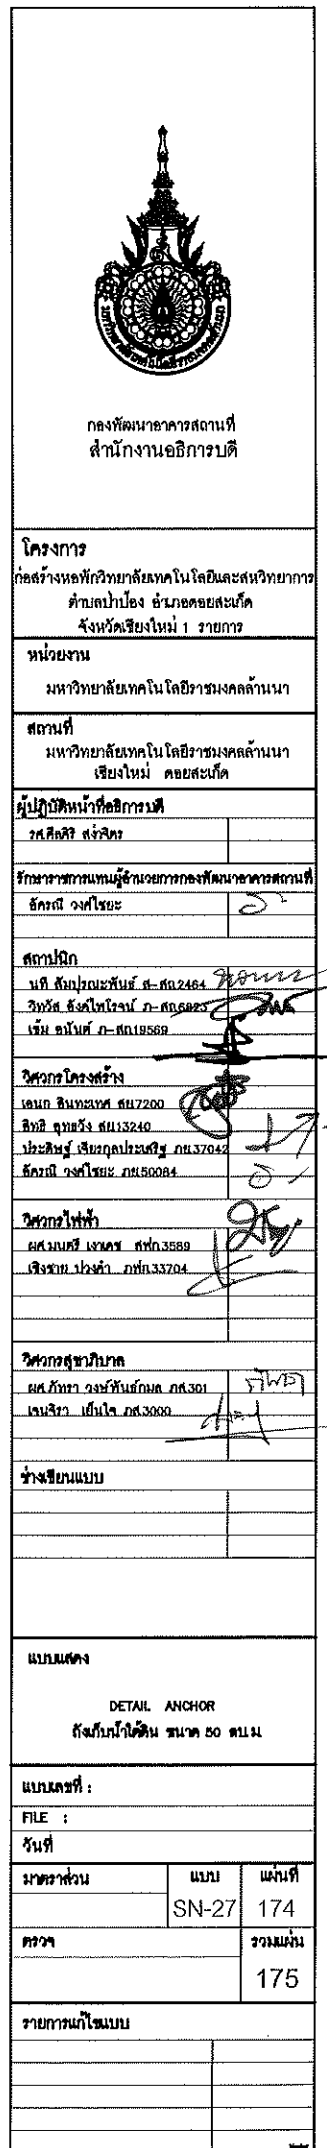 กองพัฒนาอาคารสถานที่
สำนักงานอธิการบดี
โครงการ
ก่อสร้างหอพักวิทยาลัยเทคโนโลยีและสหวิทยาการ
ตำบลป่าป้อง อำเภอดอยสะเก็ด
จังหวัดเชียงใหม่ 1 รายการ
หน่วยงาน
มหาวิทยาลัยเทคโนโลยีราชมงคลล้านนา
สถานที่
มหาวิทยาลัยเทคโนโลยีราชมงคลล้านนา
เชียงใหม่ ดอยสะเก็ด
ผู้ปฏิบัติหน้าที่อธิการบดี
รศ.ศีลศิริ สง่าจิตร
รักษาราชการแทนผู้อำนวยการกองพัฒนาอาคารสถานที่
อัครณี วงศ์ไชยะ
สถาปนิก
นที สัมปุรณะพันธ์ ส-สถ.2464
วิทวัส องค์ไพโรจน์ ภ-สถ.6823
เข้ม อนันต์ ภ-สถ.19569
วิศวกรโครงสร้าง
เอนก สินทะเทศ สย.7200
สิทธิ สุทธวัง สย.13240
ประดิษฐ์ เจียรกุลประเสริฐ ภย.37042
อัครณี วงศ์ไชยะ ภย.50084
วิศวกรไฟฟ้า
ผศ.มนตรี เงาเดช สฟก.3589
เชิงชาย ปวงคำ ภฟก.33704
วิศวกรสุขาภิบาล
ผศ.ภัทรา วงษ์พันธ์กมล ภส.301
เจนจิรา เย็นใจ ภส.3000
ช่างเขียนแบบ
แบบแสดง
DETAIL ANCHOR
ถังเก็บน้ำใต้ดิน ขนาด 50 ลบ.ม.
แบบเลขที่ :
FILE :
วันที่
มาตราส่วน แบบ แผ่นที่
SN-27 174
ตรวจ รวมแผ่น
175
รายการแก้ไขแบบ